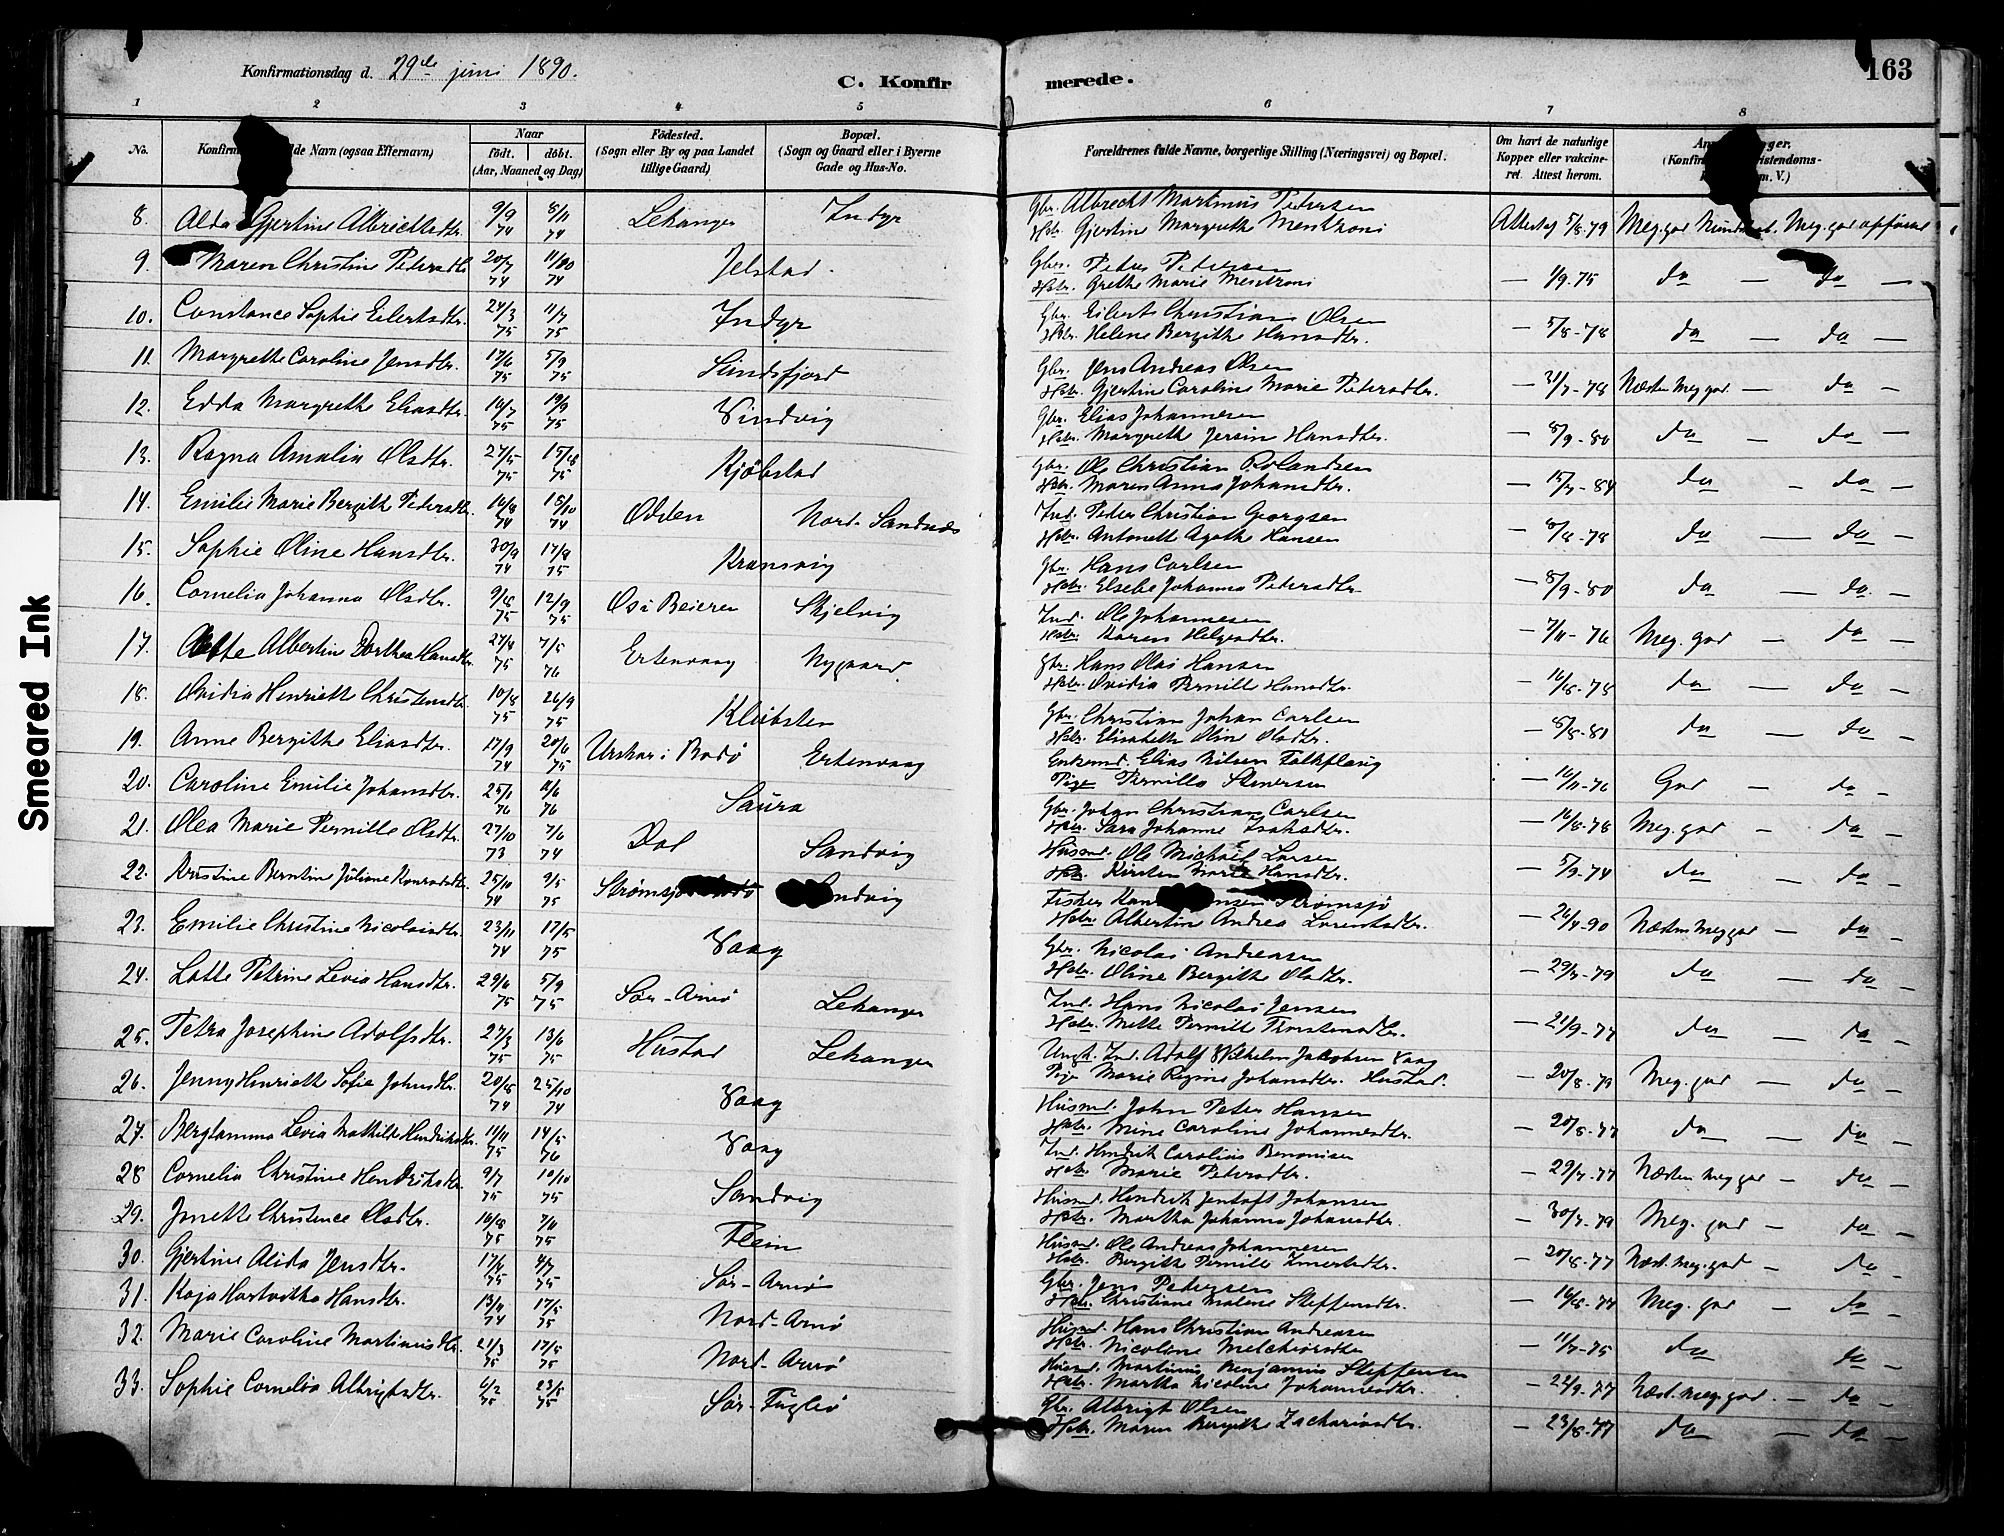 Konfirmationsdag d. 29de juni 1890.
C. Konfirmerede.
163
1 2 3 4 5 6 7 8
No.
Navn (ogsaa Efternavn)
Naar
födt. döbt.
(Aar, Maaned og Dag)
Födested.
(Sogn eller By og paa Landet
tillige Gaard)
Bopæl.
(Sogn og Gaard eller i Byerne
Gade og Hus-No.
Forældrenes fulde Navne, borgerlige Stilling (Næringsvei) og Bopæl.
Om havt de naturlige
Kopper eller vakcine-
ret. Attest herom.
8. Alda Gjertine Albrichtsdtr. 9/9 74 8/11 74 Lekanger Indyr Gbr. Albrecht Martinus Petersen Hstr. Gjertine Margrethe Mentzoni Attest af 5/8-79 Meg. god
9. Maren Christine Petersdtr 20/7 74 11/10 74 Jelstad Gbr. Peter Petersen Hstr. Grethe Marie Mentzoni — 1/9-75 da — da —
10. Constance Sophie Eilertsdtr. 24/3 75 11/7 75 Indyr Gbr. Eilert Christian Olsen Hstr. Helene Bergithe Hansdtr. — 5/8-78 da — da —
11. Margrethe Caroline Jensdtr. 17/6 75 5/9 75 Sundsfjord Gbr. Jens Andreas Olsen Hstr. Gjertine Caroline Marie Petersdtr. — 31/7-78 Næsten Meg. god — da —
12. Edda Margrethe Eliasdtr. 16/7 75 19/9 75 Vindvig Gbr. Elias Johannesen Hstr. Margreth Jersin Hansdtr. — 8/9-80 da — da —
13. Ragna Amalia Olsdtr. 27/5 75 15/8 75 Kjøbstad Gbr. Ole Christian Rolandsen Hstr. Maren Anna Johansdtr. — 15/7-84 da — da —
14. Emilie Marie Bergith Petersdtr. 16/8 74 18/10 74 Odden Nord-Sandnæs Ind. Peter Christian Georgsen Hstr. Antonette Agathe Hansen — 8/8-78 da — da —
15. Sophie Oline Hansdtr. 30/9 74 17/9 75 Kransvig Gbr. Hans Carlsen Hstr. Elsebe Johanna Petersdtr — 8/9-80 da — da —
16. Cornelia Johanna Olsdtr. 9/8 75 12/9 75 Os i Beieren Skjelvig Ind. Ole Johannesen Hstr. Karen Helgesdtr. — 7/11-76 Meg. god — da —
17. Albertin Dorthea Hansdtr. 27/4 75 7/5 76 Ertenvaag Nygaard Gbr. Hans Olai Hansen Hstr. Ovidia Pernille Hansdtr. — 16/8-78 da — da —
18. Ovidia Henriette Christensdtr 10/8 75 26/9 75 Klubsten Gbr. Christian Johan Carlsen Hstr. Elisabeth Oline Olsdtr. — 8/8-81 da — da —
19. Anne Bergithe Eliasdtr. 17/9 74 20/6 75 i Bodø Ertenvaag Enkemd. Elias Nilsen Falkflaug Pige Pernilla Stenersen — 16/11-76 God — da —
20. Caroline Emilie Johansdtr. 25/1 76 11/6 76 Saura Gbr. Johan Christian Carlsen Hstr. Sara Johanne Isaksdtr. — 16/8-78 Meg. god — da —
21. Olea Marie Pernille Olsdtr. 27/10 73 7/6 74 Dal Sandvig Husmd. Ole Michael Larsen Hstr. Kirsten Marie Hansdtr. — 5/9-74 da — da —
22. Kristine Berntine Juliane Konradsdtr 25/10 74 9/5 75 Fisker Strømsjø Hstr. Albertin Andrea Lorentsdtr. — 26/4-90 Næsten meg god — da —
23. Emilie Christine Nicolaisdtr. 23/11 74 17/5 75 Vaag Gbr. Nicolai Andreasen Hstr. Oline Bergith Olsdtr. — 29/7-79 da — da —
24. Lotte Petrine Levia Hansdtr. 29/6 75 5/9 75 Sør-Arnø Lekanger Ind. Hans Nicolai Jensen Hstr. Mette Pernille Thorstensdtr. — 21/9-77 da — da
25. Petra Josephine Adolfsdtr. 27/3 75 13/6 75 Hustad Lekanger Ungk. Ind. Adolf Wilhelm Jakobsen Vaag Pige Marie Regine Johansdtr. Hustad. — 20/8-79 Meg. god — da —
26. Jenny Henriette Sofie Johnsdtr. 20/8 74 25/10 74 Vaag Husmd. John Peter Hansen Hstr. Mine Caroline Johannesdtr. — 20/8-77 da — da —
27. Bergtamma Levia Mathilde Hendriksdtr. 11/11 75 14/5 76 Vaag Ind. Hendrik Carolius Benonisen Hstr. Marie Petersdtr. — 29/7-77 Næsten meg god — da —
28 Cornelia Christine Hendriksdtr. 9/7 75 10/10 75 Sandvig Husmd. Hendrik Jentoft Johansen Hstr. Martha Johanna Johansdtr. — 30/7-79 Meg. god — da —
29. Jonette Christence Olsdtr. 16/8 75 7/11 75 Flein Husmd. Ole Andreas Johannesen Hstr. Bergith Pernille — 20/8-77 Næst. meg. god — da —
30. Gjertine Alida Jensdtr. 17/4 75 4/7 75 Sør-Arnø Gbr. Jens Pedersen Hstr. Christiane Malene Steffensdtr. — 16/8-77 Meg. god — da —
31. Kaja Hartvikka Hansdtr. 13/11 74 17/5 75 Nord-Arnø Husmd. Hans Christian Andreasen Hstr. Nicoline Melchiorsdtr — 11/7-75 da — da —
32. Marie Caroline Martinusdtr. 21/3 75 17/5 75 Nord-Arnø Husmd. Martinus Benjamin Steffensen Hstr. Martha Nicoline Johannesdtr. — 24/9-77 Næst. meg. god — da —
33. Sophie Cornelia Albrigtsdtr. 6/2 75 23/5 75 Sør-Fuglø Gbr. Albrigt Olsen Hstr. Maren Bergith Zachariasdtr. — 23/8-77 da — da —
Smeared Ink